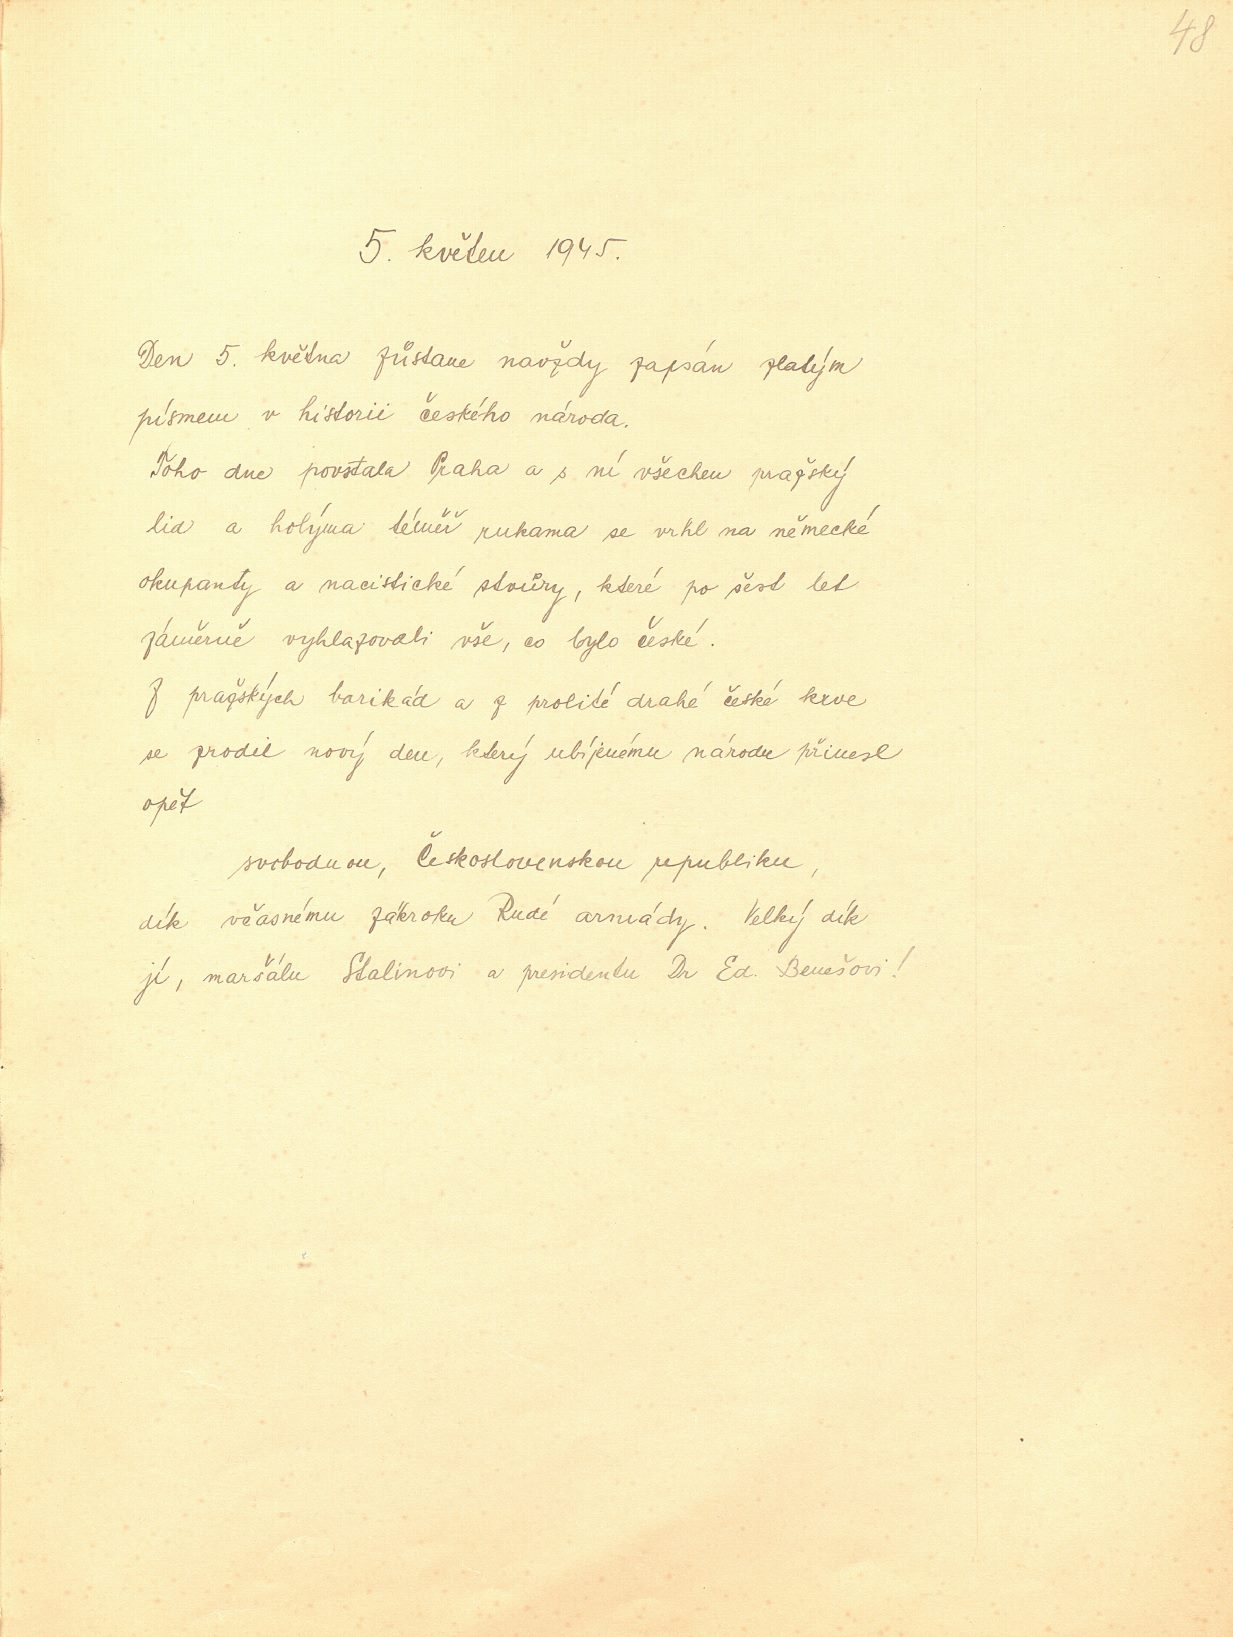 48
5. květen 1945.
Den 5. května zůstane navždy zapsán zlatým
písmem v historii českého národa.
Toho dne povstala Praha a s ní všechen pražský
lid a holýma téměř rukama se vrhl na německé
okupanty a nacistické stvůry, které po šest let
záměrně vyhlazovali vše, co bylo české.
Z pražských barikád a z prolité drahé české krve
se zrodil nový den, který ubíjenému národu přinesl
opět
svobodnou, Československou republiku,
dík včasnému zákroku Rudé armády. Velký dík
jí, maršálu Stalinovi a presidentu Dr Ed. Benešovi!